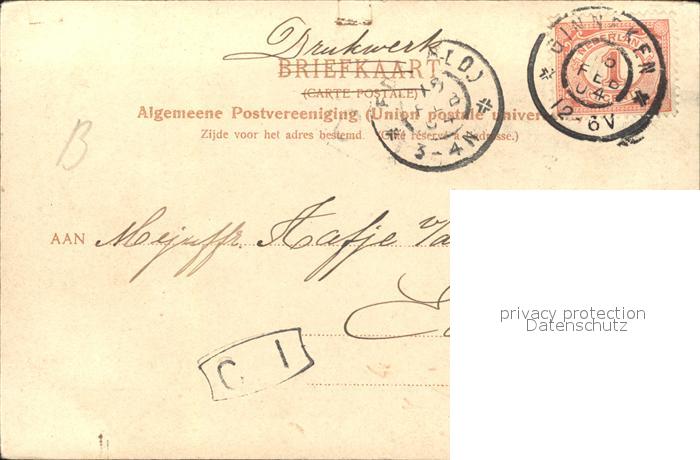 Drukwerk
BRIEFKAART
(CARTE POSTALE)
Algemeene Postvereeniging (Union postale univer
Zijde voor het adres bestemd. (Côté réservé à l'adresse.)
GINNEKEN
FEB
04
12-6V
NEDERLAND
1
3-4N
B
AAN Mejuffr.
C 1
privacy protection
Datenschutz